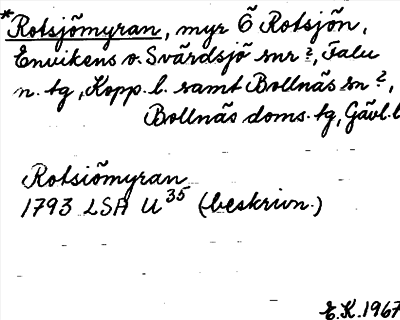 *Rotsjömyran, myr Ö Rotsjön,
Envikens o. Svärdsjö snr ?, Falu
n. tg, Kopp. l. samt Bollnäs sn ?,
Bollnäs doms. tg, Gävl. l
Rotsiömyran
1793 LSA U 35 (beskrivn.)
E.K. 1967